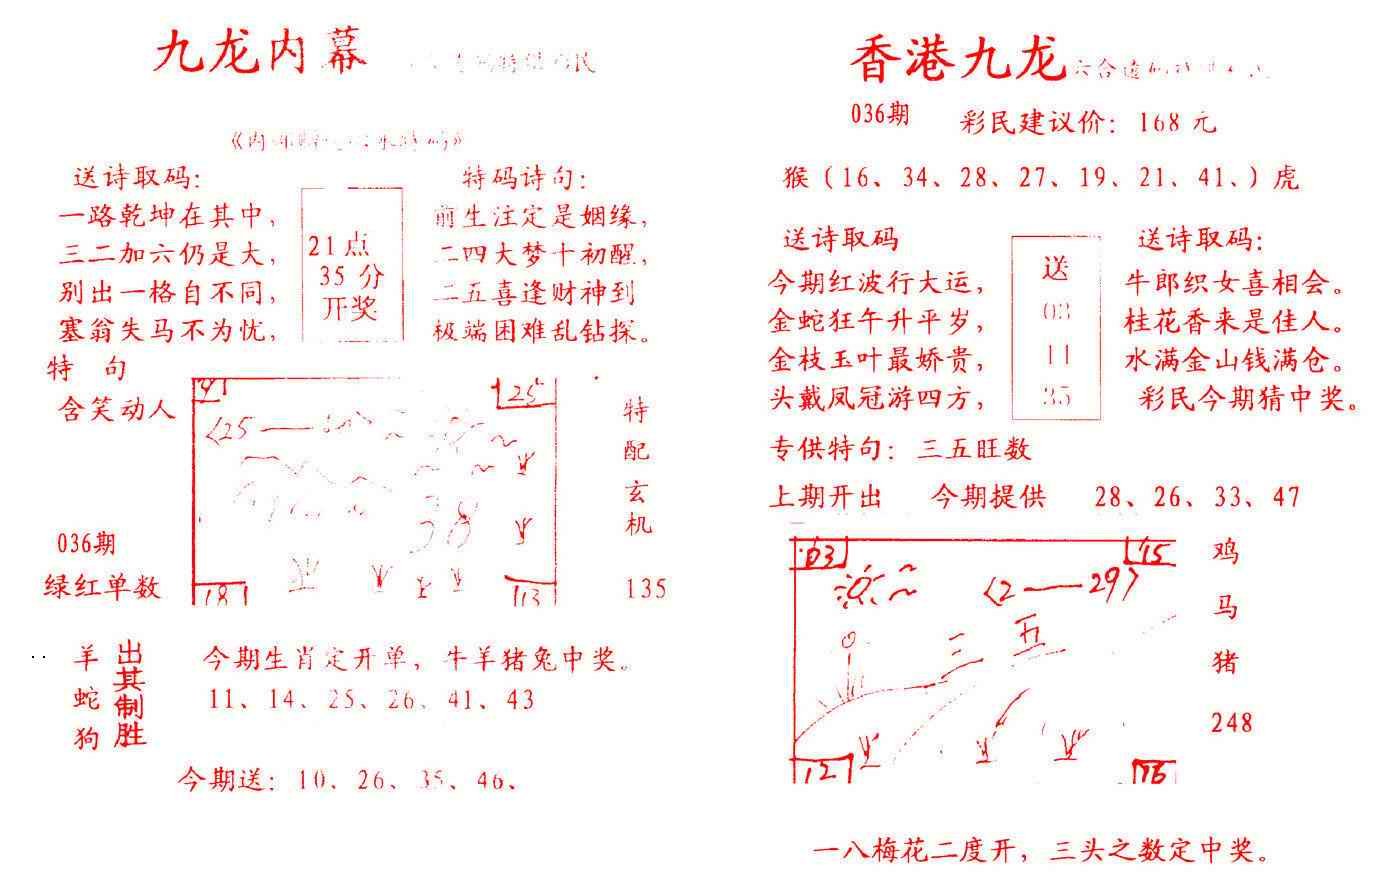 九龙内幕
送诗取码：
一路乾坤在其中，
三二加六仍是大，
别出一格自不同，
塞翁失马不为忧，
21点
35 分
开奖
特码诗句：
前生注定是姻缘，
二四大梦十初醒，
二五喜逢财神到
极端困难乱钻探。
特 句
含笑动人
036期
绿红单数
9
25
<25——
38
18
13
特
配
玄
机
135
羊
蛇
狗
出其制胜
今期生肖定开单，牛羊猪兔中奖。
11、14、25、26、41、43
今期送：10、26、35、46、
香港九龙
036期
彩民建议价：168 元
猴（16、34、28、27、19、21、41、）虎
送诗取码
今期红波行大运，
金蛇狂午升平岁，
金枝玉叶最娇贵，
头戴凤冠游四方，
送
03
11
35
送诗取码：
牛郎织女喜相会。
桂花香来是佳人。
水满金山钱满仓。
彩民今期猜中奖。
专供特句：三五旺数
上期开出 今期提供 28、26、33、47
03
15
<2——29>
三五
12
16
鸡
马
猪
248
一八梅花二度开，三头之数定中奖。